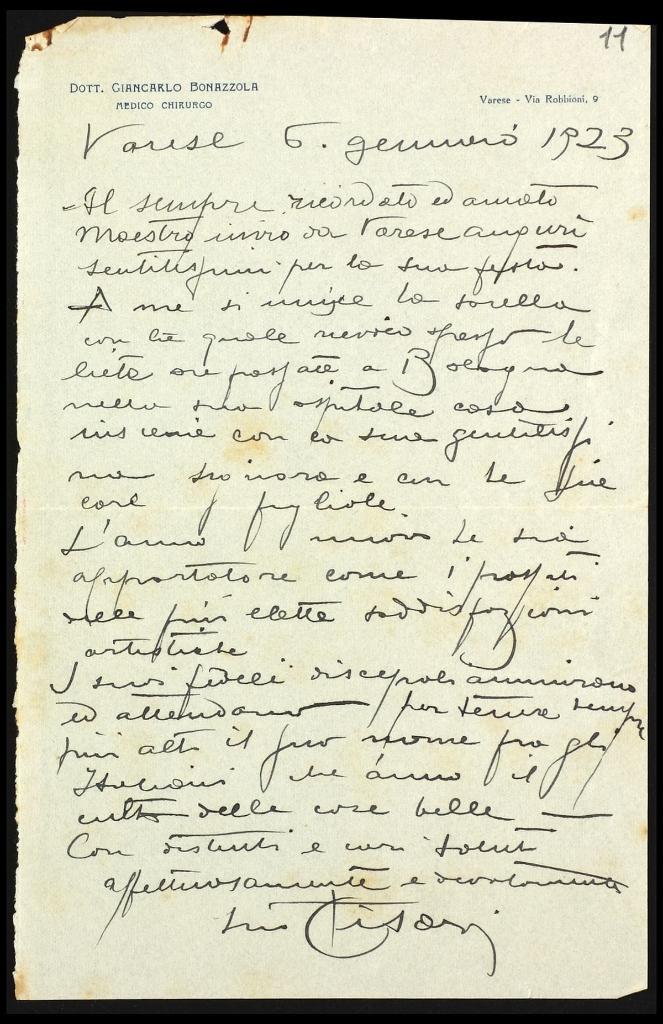 11
DOTT. GIANCARLO BONAZZOLA
MEDICO CHIRURGO
Varese - Via Robbioni, 9
Varese 6. gennaio 1923
Al sempre ricordato ed amato
Maestro invio da Varese auguri
sentitissimi per la sua festa.
A me si unisce la sorella
con la quale rievoco spesso le
liete ore passate a Bologna
nella sua ospitale casa
insieme con la sua gentilissi
ma signora e con le sue
care figliole.
L'anno nuovo le sia
apportatore come i passati
delle più elette soddisfazioni
artistiche
I suoi fedeli discepoli ammirano
ed attendono per tenere sempre
più alto il suo nome fra gli
Italiani che hanno il
culto delle cose belle —
Con distinti e cari saluti
affettuosamente e devotamente
suo